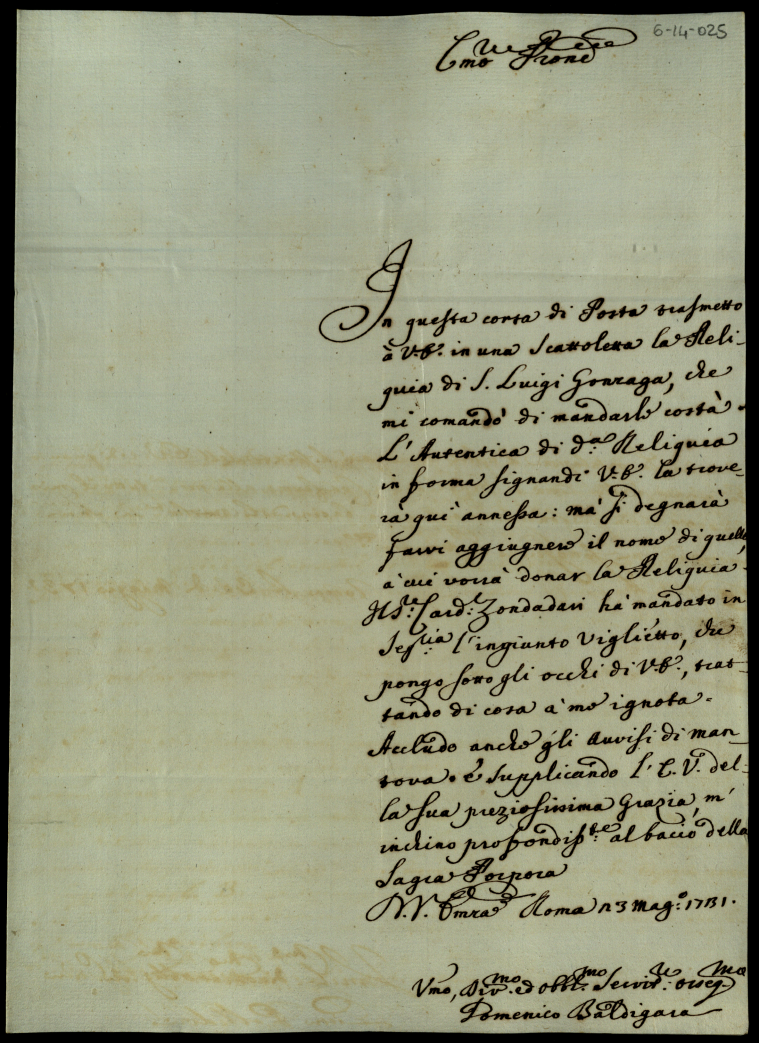 6-14-025
Emo e Rmo Prone
In questa corsa di Posta trasmetto
à V.E. in una Scattoletta la Reli-
quia di S. Luigi Gonzaga, che
mi comandò di mandarle costà.
L'Autentica di da. Reliquia
in forma signandi V.E. la trove-
rà qui annessa: mà si degnarà
farvi aggiugnere il nome di quello,
à cui vorrà donar la Reliquia.
Il Sr. Card.l Zondadari hà mandato in
Segria l'ingiunto Viglietto, che
pongo sotto gli occhi di V.E., trat-
tando di cosa à me ignota.
Accludo anche gli Avvisi di Man-
tova. e supplicando l'E.V. del-
la sua preziosissima Grazia, m'
inchino profondiss.te al bacio della
Sagra Porpora
D.V. Emza Roma 23 Mag.o 1731.
Vmo, Divmo. ed obblmo. Servitre osseqmo
Domenico Baldigara